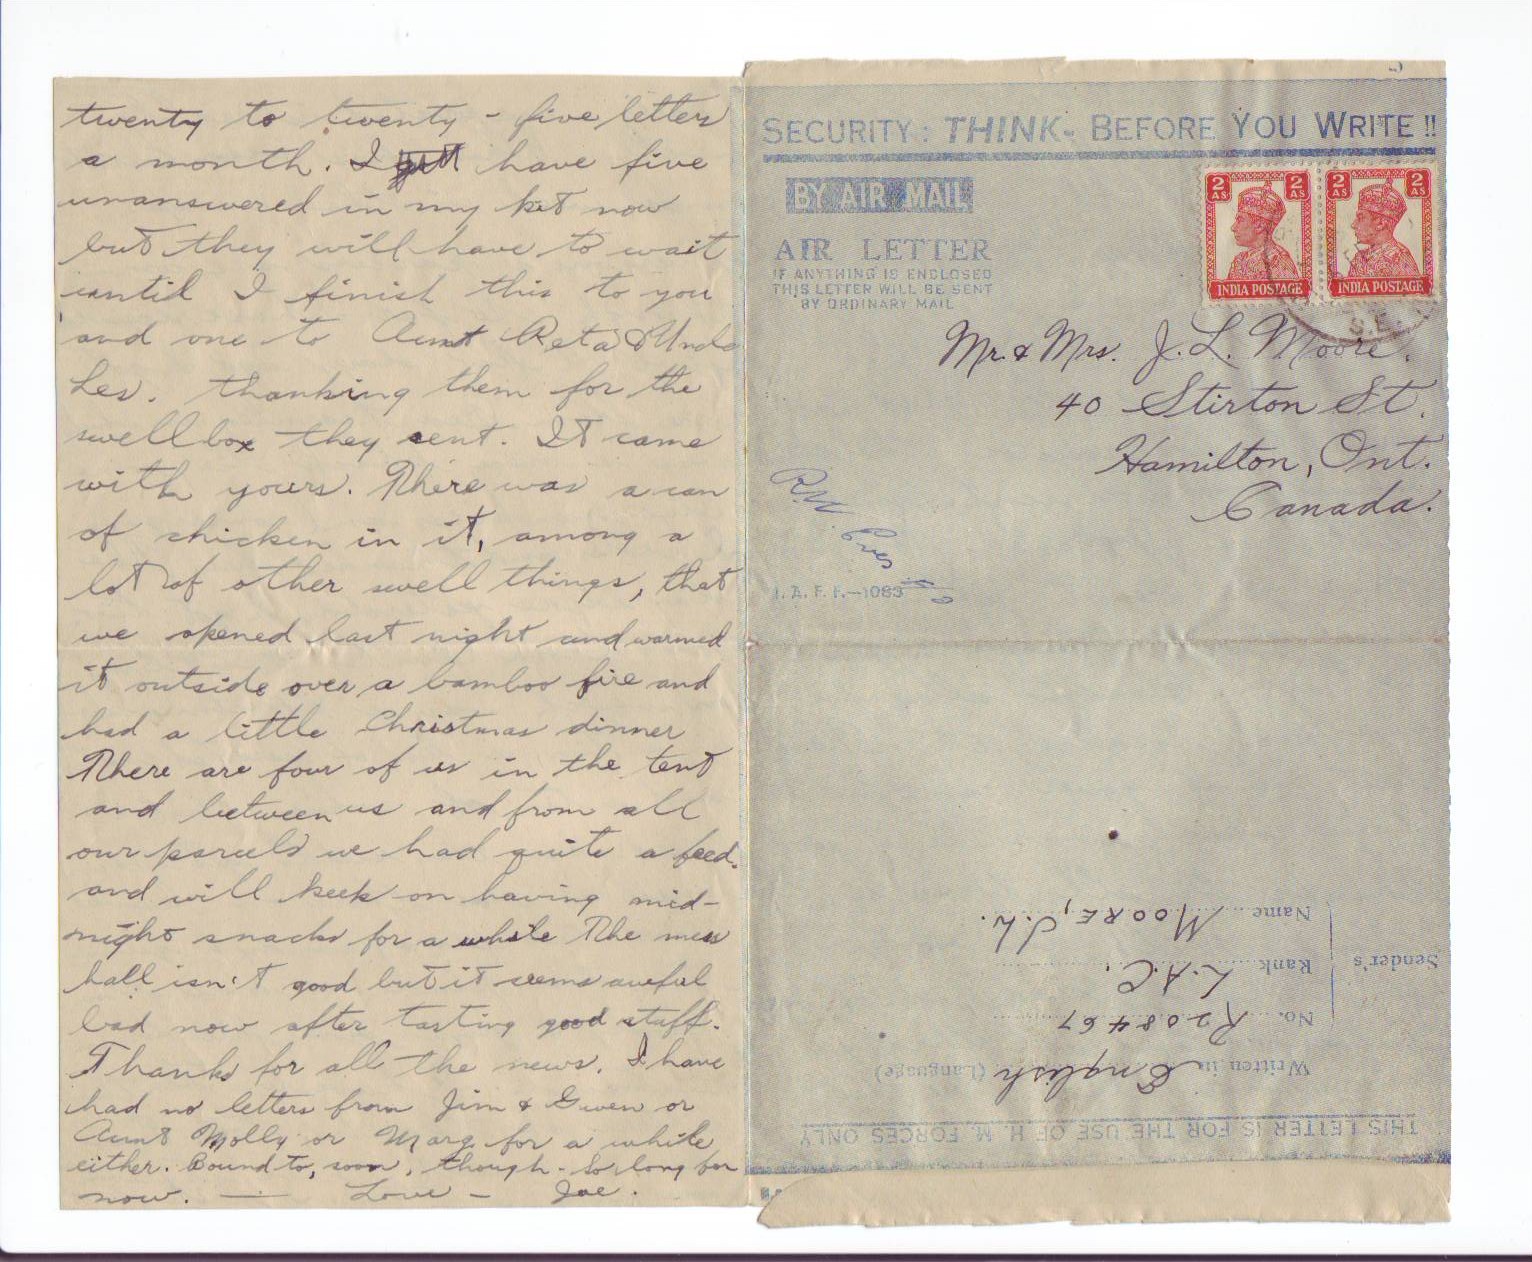 twenty to twenty - five letters
a month. I have five
unanswered in my kit now
but they will have to wait
until I finish this to you
and one to Aunt Reta & Uncle
Les. thanking them for the
swell box they sent. It came
with yours. There was a can
of chicken in it, among a
lot of other swell things, that
we opened last night and warmed
it outside over a bamboo fire and
had a little Christmas dinner
There are four of us in the tent
and between us and from all
our parcels we had quite a feed.
and will keek on having mid-
night snacks for a while The mess
hall isn't good but it seems aweful
bad now after tasting good stuff.
Thanks for all the news. I have
had no letters from Jim & Gwen or
Aunt Molly or Marg for a while
either. Bound to, soon, though - So long for
now. — Love - Joe.
SECURITY: THINK- BEFORE YOU WRITE!!
BY AIR MAIL
AIR LETTER
IF ANYTHING IS ENCLOSED
THIS LETTER WILL BE SENT
BY ORDINARY MAIL
2 AS 2 AS 2 AS 2 AS
INDIA POSTAGE INDIA POSTAGE
Mr. & Mrs. J. L. Moore.
40 Stirton St.
Hamilton, Ont.
Canada.
I. A. F. F.—1083
THIS LETTER IS FOR THE USE OF H. M. FORCES ONLY
Written in English (Language)
No. R208467
Sender's Rank L.A.C.
Name MOORE, J.L.